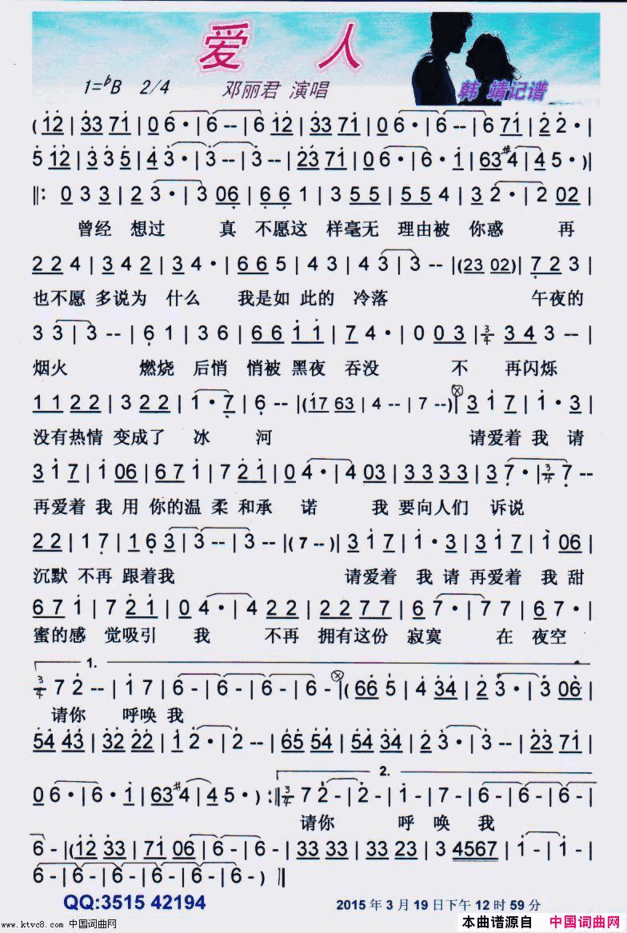 爱 人
1=♭B 2/4 邓丽君 演唱 韩 靖记谱
(12|3371|06·|6--|6106|06·|6--|671|22·|
512|335|43·|3-|3--|2371|06·|6·1|63#4|45·)|
‖:033|23·|306|661|355|554|32·|202|
曾经 想过 真 不愿这 样毫无 理由被 你惑 再
224|342|34·|665|43|433|3--|(2302)|723|
也不愿 多说为 什么 我是如 此的 冷落 午夜的
33|3--|61|36|6611|74·|003|3/4 343--|
烟火 燃烧 后悄 悄被 黑夜 吞没 不 再闪烁
1122|322|1·7|6--|(1763|4--|7--)|317|1·3|
没有热情 变成了 冰 河 请爱着 我 请
317|106|671|721|04·|403|3333|37·|3/4 7--
再爱着 我 用 你的温 柔 和承 诺 我 要向人们 诉说
22|17|163|3--|3--|(7--)|317|1·3|317|106|
沉默 不再 跟着我 请爱着 我 请 再爱着 我 甜
671|721|04·|422|2277|67·|77|67·|
蜜的感 觉吸引 我 不再 拥有这份 寂寞 在 夜空
1.
3/4 72--|17|6-|6-|6-|6-|(665|434|23·|306|
请你 呼唤 我
5443|3222|12·|2--|6554|5434|23·|3--|2371|
2.
06·|6·1|63#4|45·):‖3/4 72-|2-|1-|7-|6-|6-|6-|
请你 呼 唤 我
6-|(1233|7106|6-|6-|3333|3323|34567|1-|1-|
6-|6-|6-|6-)‖
QQ:3515 42194 2015 年 3 月 19 日下午 12 时 59 分
www.ktvc8.com 中国词曲网 本曲谱源自 中国词曲网